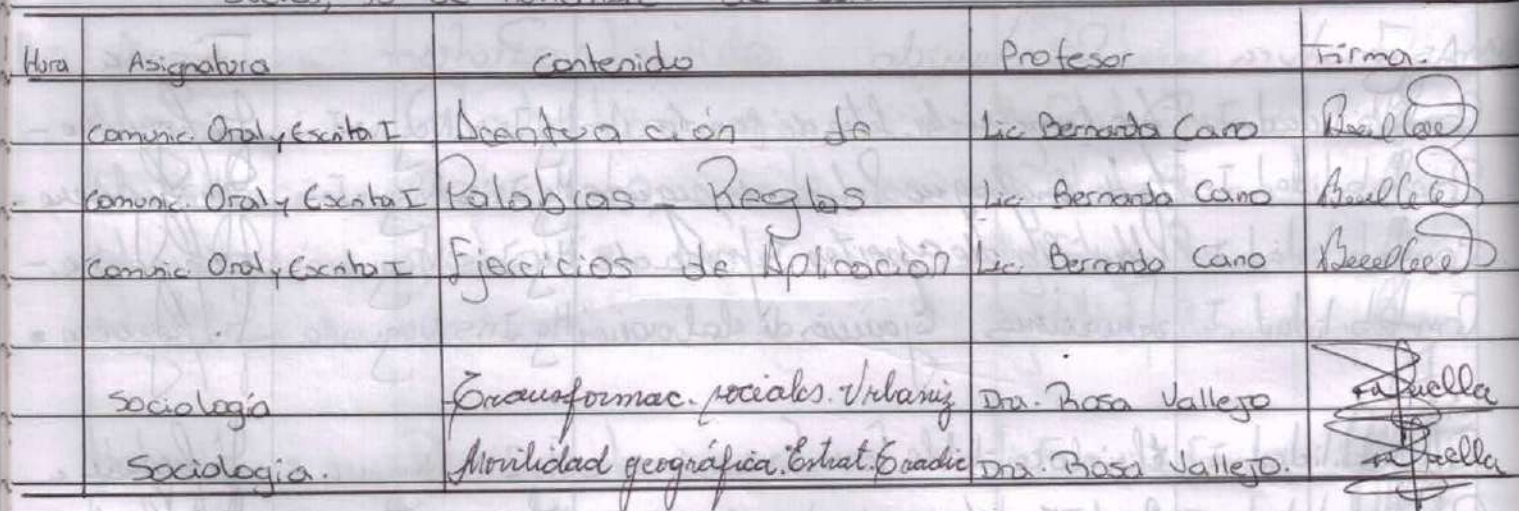 Hora Asignatura Contenido Profesor Firma.
Comunic. Oral y Escrita I Acentuación de Lic. Bernarda Cano
Comunic. Oral y Escrita I Palabras - Reglas Lic. Bernarda Cano
Comunic. Oral y Escrita I Ejercicios de Aplicación Lic. Bernarda Cano
Sociología Transformac. sociales. Urbaniz Dra. Rosa Vallejo
Sociología. Movilidad geográfica. Estrat. Dra. Rosa Vallejo.